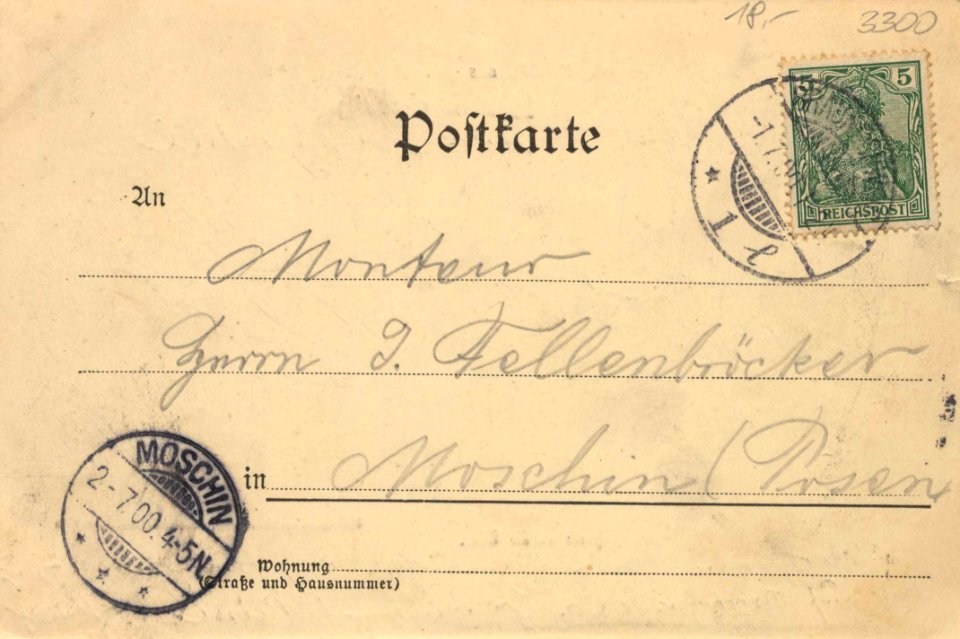 18,- 3300
Postkarte
5 5
REICHSPOST
-1.7.00
1 l
An
Monteur
Herrn J. Fellenböcker
in Moschin (Posen
MOSCHIN
2-7.00.4-5N.
Wohnung
(Straße und Hausnummer)